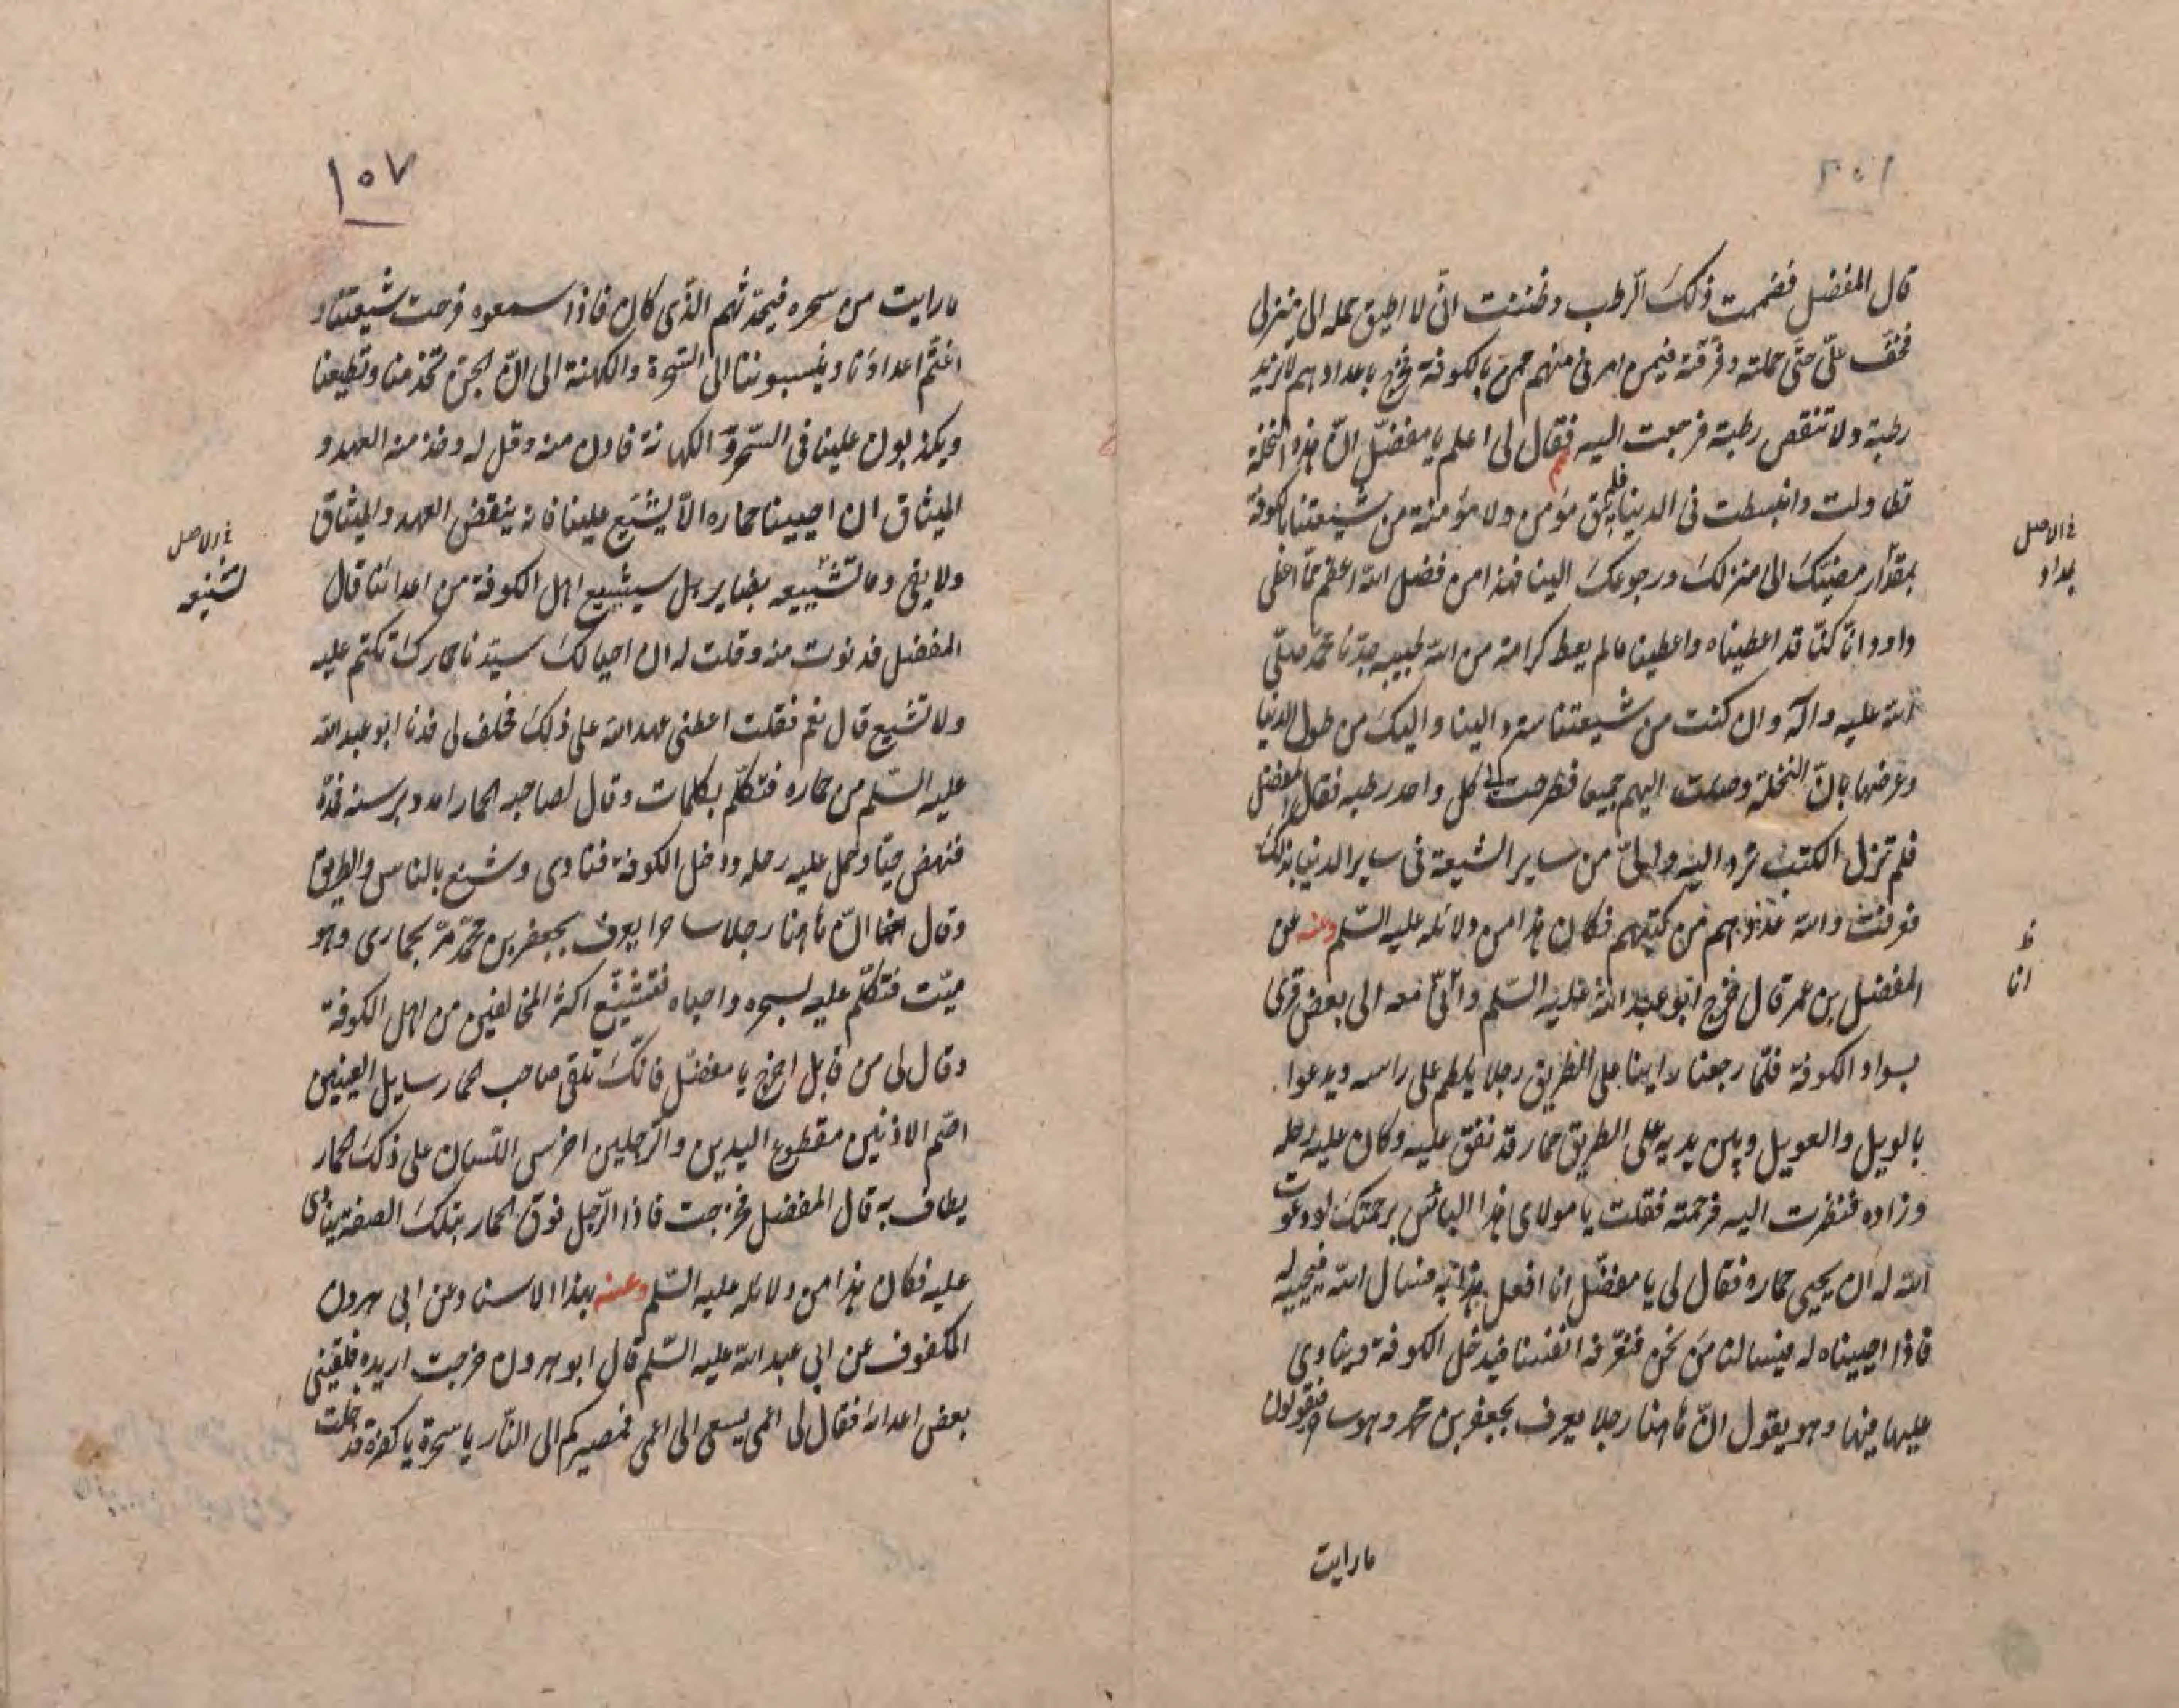 قال المفضل فضممت ذلك الرطب وظننت انّى لا اطيق حمله الى منزلى
فخفّ علىّ حتّى حملته وفرّقته فيمن امرنى منهم ممن بالكوفة فخرج باعدادهم لا تزيد
رطبة ولا تنقص رطبة فرجعت اليه فقال لى اعلم يا مفضّل انّ هذه النخلة
تطاولت وانبسطت فى الدنيا فلم يبق مؤمن ولا مؤمنة من شيعتنا بالكوفة
بمقدار مضيّك الى منزلك ورجوعك الينا فهذا من فضل اللّه اعظم ممّا اعطى
داود انّا كنّا قد اعطيناه واعطينا ما لم يعط كرامة من اللّه لحبيبه جدّنا محمّد صلّى
اللّه عليه وآله وان كنت من شيعتنا سترد الينا واليك من طول الدنيا
وعرضها بانّ النخلة وصلت اليهم جميعا فطرحت الى كل واحد رطبه فقال المفضل
فلم تزل الكتب ترد اليه والىّ من ساير الشيعة فى ساير الدنيا بذلك
فعرفت واللّه عددهم من كتبهم فكان هذا من دلائله عليه السّلم وعنه عن
المفضل بن عمر قال خرج ابو عبد اللّه عليه السّلم وانّى معه الى بعض قرى
بسواد الكوفة فلمّا رجعنا راينا على الطريق رجلا يلطم على راسه ويدعوا
بالويل والعويل وبين يديه على الطريق حمار قد نفق عليه وكان عليه رحله
وزاده فنظرت اليه فرحمته فقلت يا مولاى هذا البائس برحمتك لو دعوت
اللّه له ان يحيى حماره فقال لى يا مفضّل انا افعل هذا به فنسال اللّه فيحييه له
فاذا احييناه له فيسالنا من نحن فنعرّفه انفسنا فيدخل الكوفة وينادى
عليها فيها وهو يقول انّ هاهنا رجلا يعرف بجعفر بن محمد وهو ساحر فيقولون
ما رايت
فى الاصل
بمداد
ظ
انا
١٥٧
ما رايت من سحره فيحدّثهم الذّى كان فاذا سمعوه فرحت شيعتنا و
اغتمّ اعداؤنا وينسبوننا الى السّحرة والكهنة الى انّ الجنّ تخدمنا وتطيعنا
ويكذبون علينا فى السّحر والكهانة فادن منه وقل له وخذ منه العهد و
الميثاق ان احيينا حماره الّا يشنّع علينا فانه ينقض العهد والميثاق
ولا يفى وما تشنيعه بضاير بل سيشيع اهل الكوفة من اعدائنا قال
المفضل فدنوت منه وقلت له ان احيا لك سيّدنا حمارك تكتم عليه
ولا تشنع قال نعم فقلت اعطنى عهد اللّه على ذلك فحلف لى فدنا ابو عبد اللّه
عليه السّلم من حماره فتكلّم بكلمات وقال لصاحب الحمار امدد برسنه فمدّه
فنهض حيّا وحمل عليه رحله ودخل الكوفة فنادى وشنع بالناس والطريق
وقال انّ هاهنا رجلا ساحرا يعرف بجعفر بن محمّد مرّ بحمارى وهو
ميّت فتكلّم عليه بسحره واحياه فتشنّع اكثر المخالفين من اهل الكوفة
وقال لى من قابل اخرج يا مفضّل فانّك تلقى صاحب الحمار سايل العينين
اصّم الاذنين مقطوع اليدين والرّجلين اخرس اللّسان على ذلك الحمار
يطاف به قال المفضل فخرجت فاذا الرّجل فوق الحمار بتلك الصفة ينادى
عليه فكان هذا من دلائله عليه السّلم وعنه بهذا الاسناد عن ابى هرون
المكفوف عن ابى عبد اللّه عليه السّلم قال ابو هرون خرجت اريده فلقينى
بعض اعدائه فقال لى اعمى يسعى الى اعمى فمصيركم الى النّار يا سحرة يا كفرة فدخلت
فى الاصل
تشنيعه